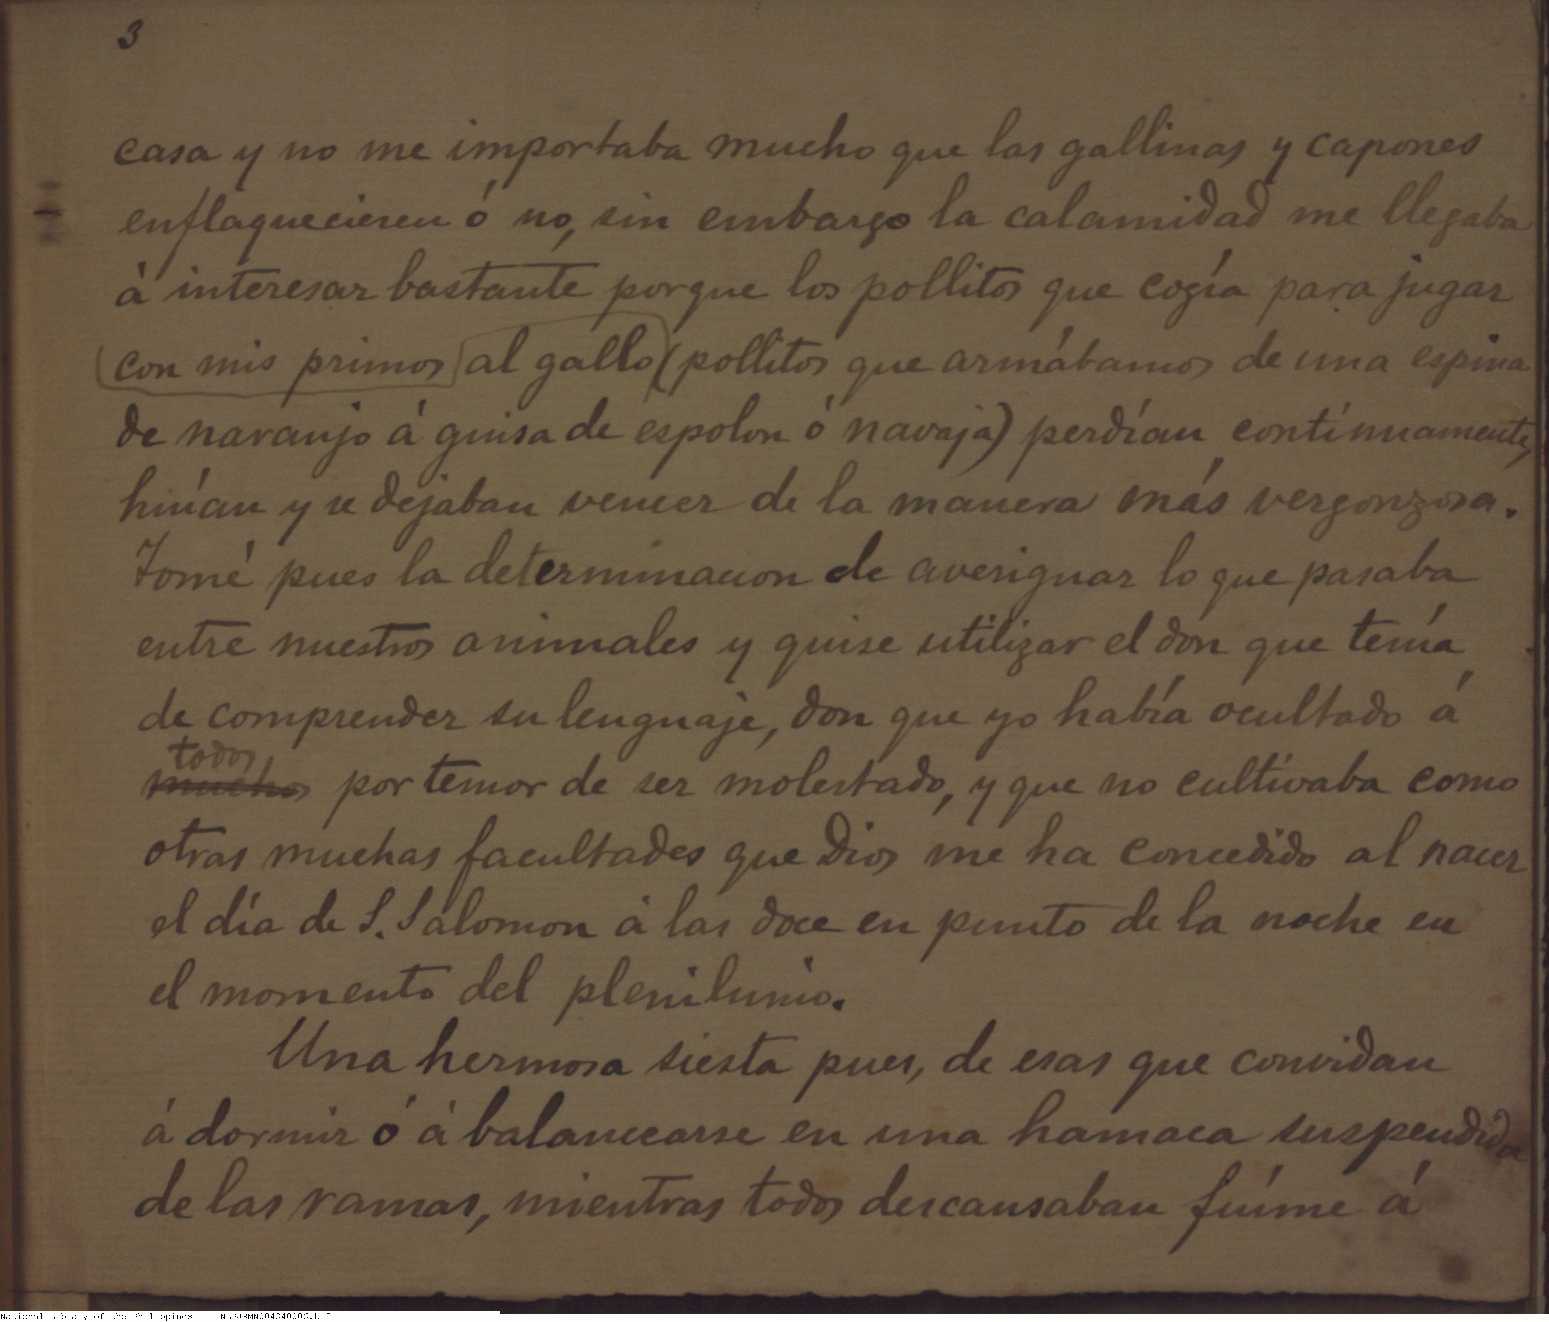 3
casa y no me importaba mucho que las gallinas y capones
enflaquecieren ó no, sin embargo la calamidad me llegaba
á interesar bastante porque los pollitos que cogía para jugar
con mis primos al gallo (pollitos que armábamos de una espina
de naranjo á guisa de espolon ó navaja) perdían contínuamente,
huían y se dejaban vencer de la manera más vergonzosa.
Tomé pues la determinacion de averiguar lo que pasaba
entre nuestros animales y quise utilizar el don que tenía
de comprender su lenguaje, don que yo había ocultado á
todos
muchos por temor de ser molestado, y que no cultivaba como
otras muchas facultades que Dios me ha concedido al nacer
el día de S. Salomon á las doce en punto de la noche en
el momento del plenilunio.
Una hermosa siesta pues, de esas que convidan
á dormir ó á balancearse en una hamaca suspendida
de las ramas, mientras todos descansaban fuíme á
National Library of the Philippines